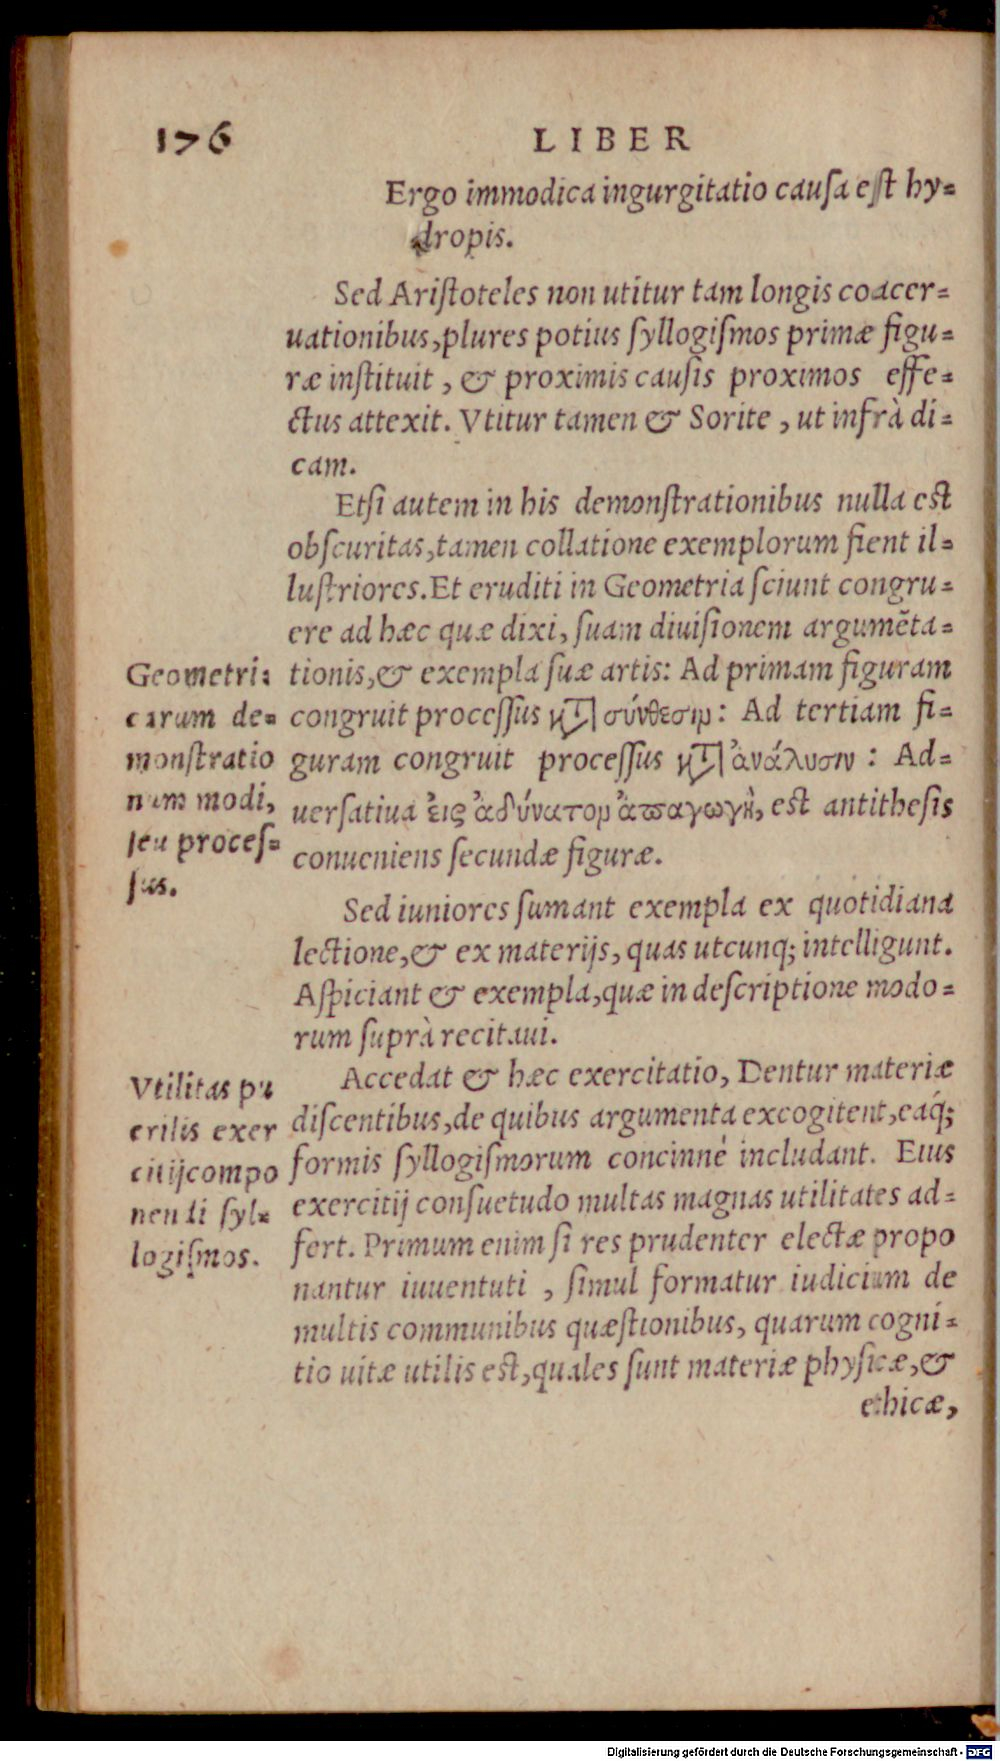 176 LIBER
Ergo immodica ingurgitatio causa est hy-
dropis.
Sed Aristoteles non utitur tam longis coacer-
uationibus, plures potius syllogismos primæ figu-
ræ instituit, & proximis causis proximos effe-
ctus attexit. Vtitur tamen & Sorite, ut infrà di-
cam.
Etsi autem in his demonstrationibus nulla est
obscuritas, tamen collatione exemplorum fient il-
lustriores. Et eruditi in Geometria sciunt congru-
ere ad hæc quæ dixi, suam diuisionem argumẽta-
tionis, & exempla suæ artis: Ad primam figuram
congruit processus κτ̀ σύνθεσιν: Ad tertiam fi-
guram congruit processus κτ̀ ἀνάλυσιν: Ad-
uersatiua ἐις ἀδύνατον ἀπαγωγὴ, est antithesis
conueniens secundæ figuræ.
Geometri-
carum de-
monstratio
num modi,
seu proces-
sus.
Sed iuniores sumant exempla ex quotidiana
lectione, & ex materijs, quas utcunq; intelligunt.
Aspiciant & exempla, quæ in descriptione modo-
rum suprà recitaui.
Accedat & hæc exercitatio, Dentur materiæ
discentibus, de quibus argumenta excogitent, eaq́;
formis syllogismorum concinnè includant. Eius
exercitij consuetudo multas magnas utilitates ad-
fert. Primum enim si res prudenter electæ propo
nantur iuuentuti, simul formatur iudicium de
multis communibus quæstionibus, quarum cogni-
tio uitæ utilis est, quales sunt materiæ physicæ, &
Vtilitas pu
erilis exer
citij compo
nendi syl-
logismos.
ethicæ,
Digitalisierung gefördert durch die Deutsche Forschungsgemeinschaft - DFG